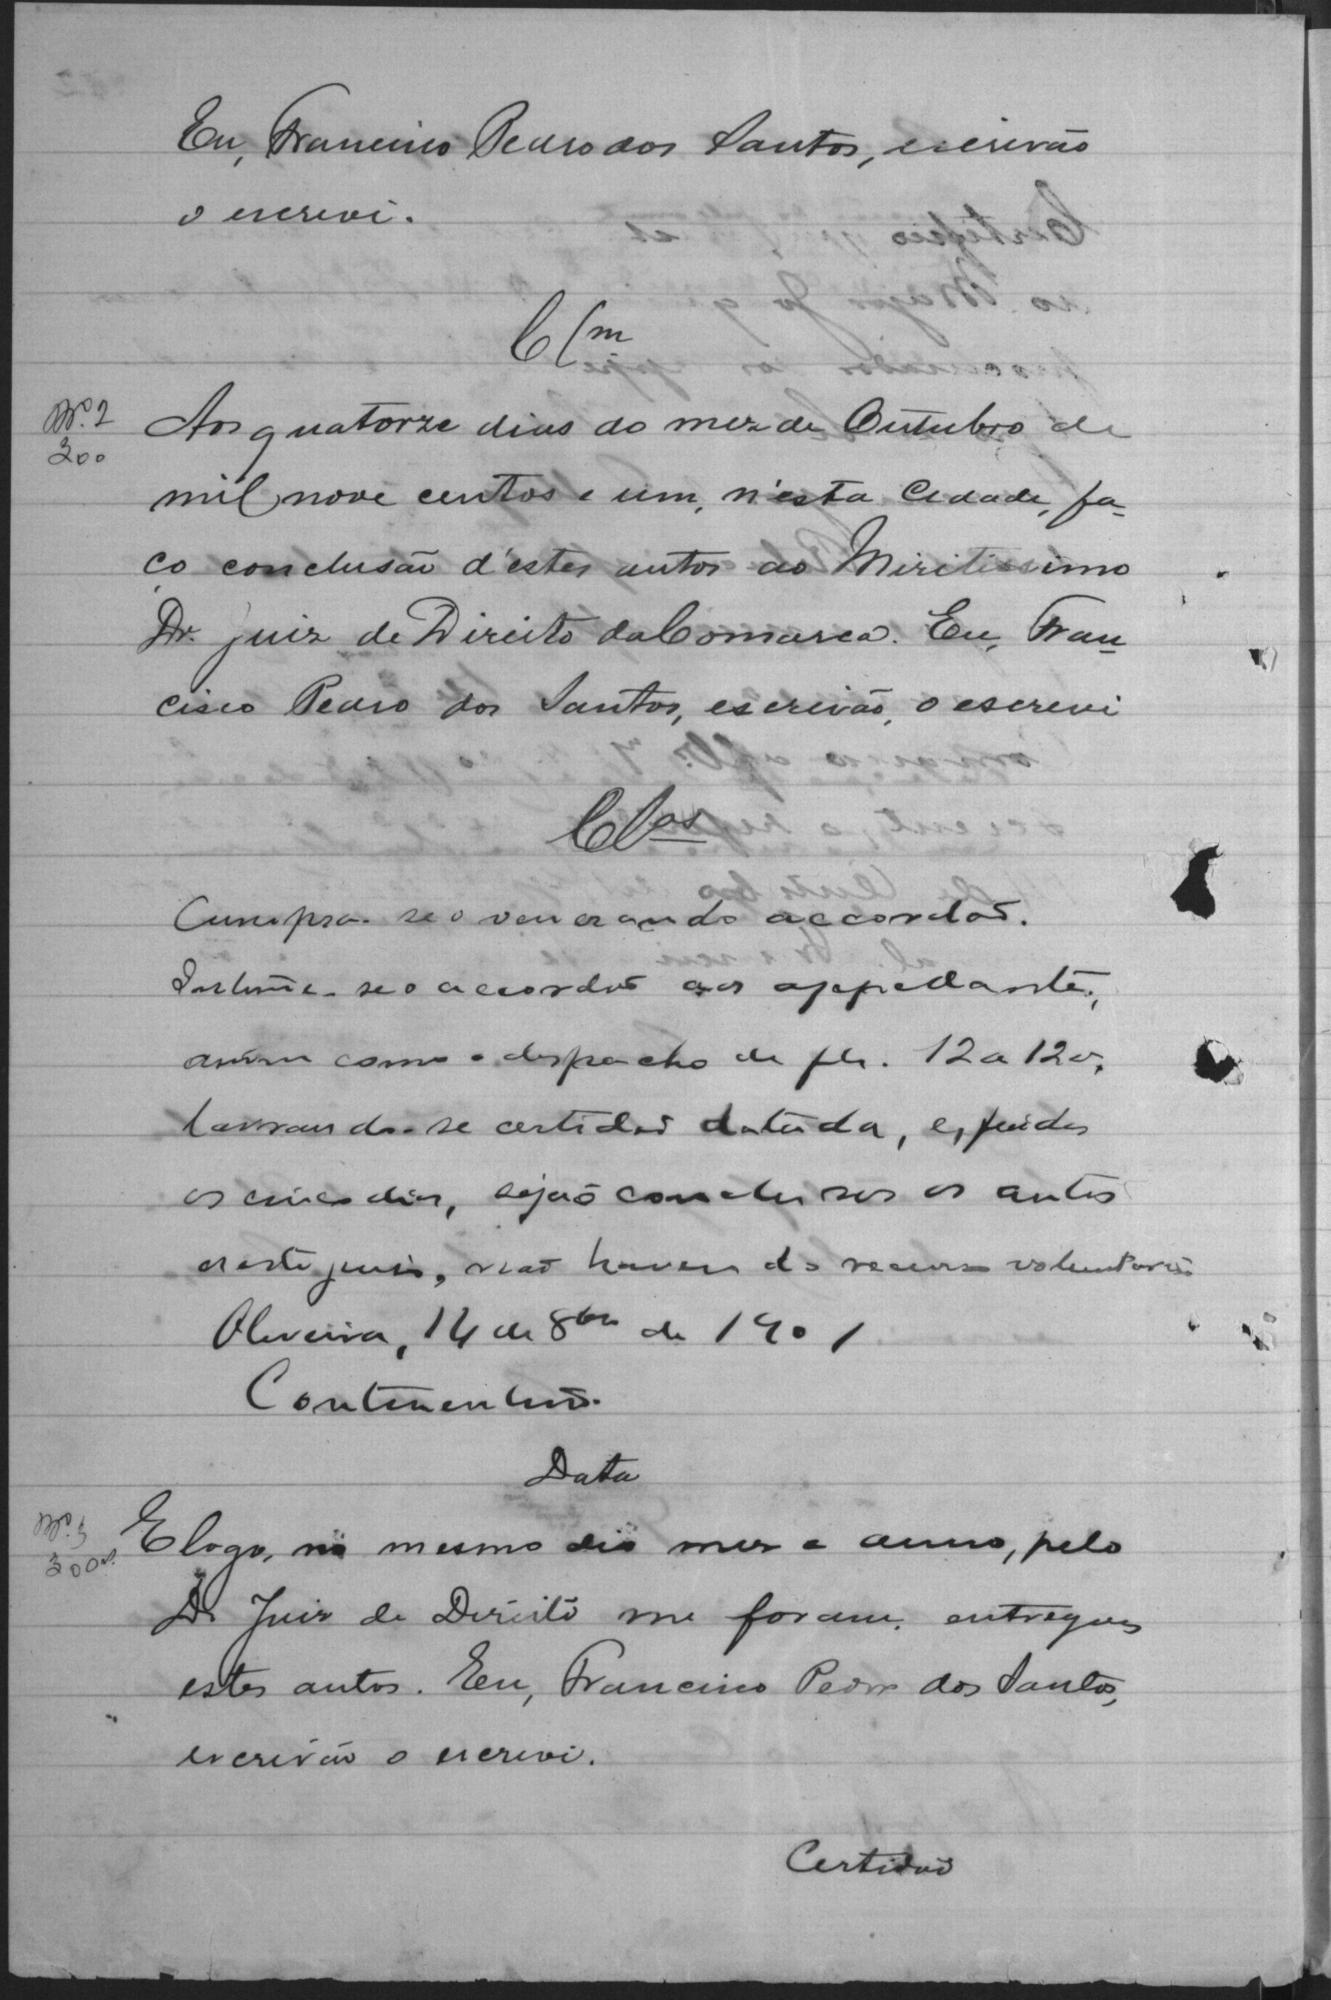 Eu, Francisco Pedro dos Santos, escrivão
o escrevi.
Clm
Nº. 2
300
Aos quatorze dias do mez de Outubro de
mil nove centos e um, n'esta Cidade, fa-
ço conclusão d'estes autos ao Miritissimo
Dr. Juiz de Direito da Comarca. Eu, Fran-
cisco Pedro dos Santos, escrivão, o escrevi
Clos
Cumpra-se o venerando accordão.
Intime-se o accordão aos appellantes,
assim como o despacho de fls. 12 a 12v,
lavrando-se certidão datada, e, findos
os cinco dias, sejão conclusos os autos
a este juizo, não havendo recurso voluntario
Oliveira, 14 de 8bro de 1901
Data
Nº. 3
300 rs.
E logo, no mesmo dia mez e anno, pelo
Dr Juiz de Direito me foram entregues
estes autos. Eu, Francisco Pedro dos Santos,
escrivão o escrevi.
Certidão